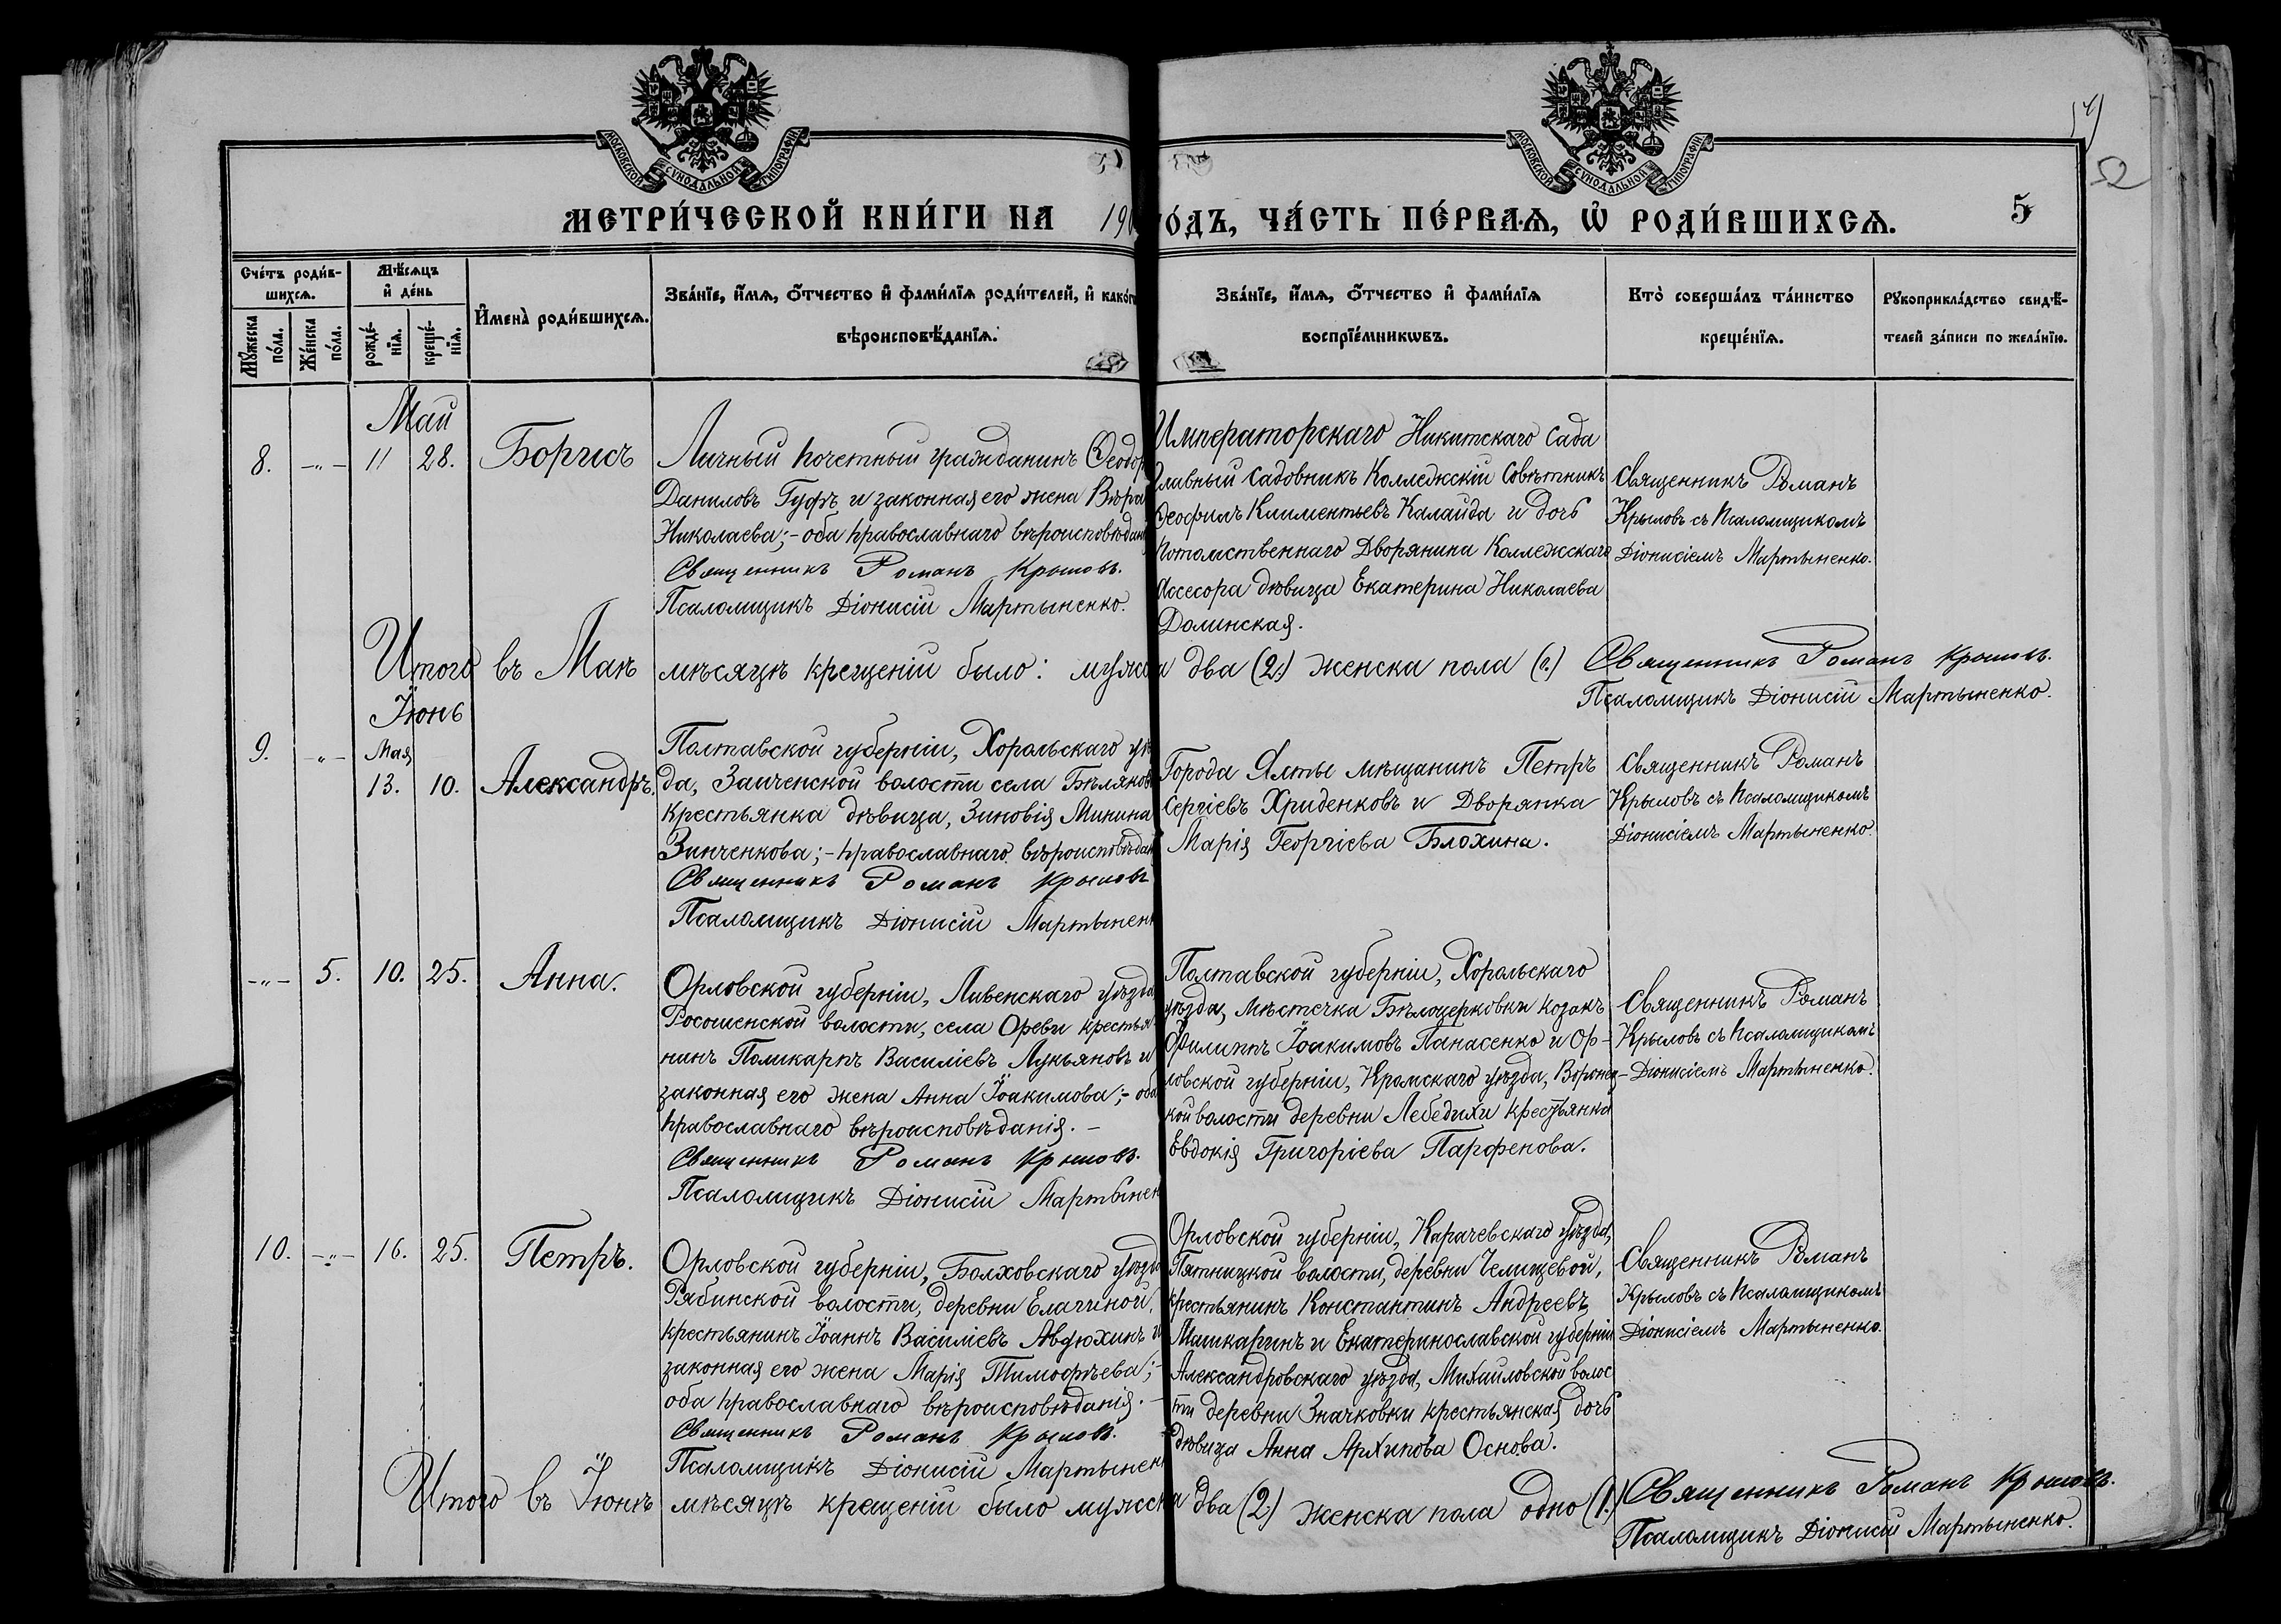 МОСКОВСКОЙ СѴНОДАЛЬНОЙ ТИПОГРАФІИ
МОСКОВСКОЙ СѴНОДАЛЬНОЙ ТИПОГРАФІИ
МЕТРИ́ЧЕСКОЙ КНИ́ГИ НА 190
О́ДЪ, ЧА́СТЬ ПЕ́РВАѦ, Ѡ҆ РОДИ́ВШИХСѦ. 5
Сче́тъ роди́в-
шихсѧ.
Мꙋ́жеска по́ла.
Же́нска по́ла.
Мѣ́сѧцъ
и҆ де́нь
рожде́-
нїѧ.
креще́-
нїѧ.
И҆мена̀ роди́вшихсѧ.
Зва́нїе, и҆́мѧ, ѻ҆́тчество и҆ фами́лїѧ роди́телей, и҆ како́гѡ
вѣроисповѣ́данїѧ.
Зва́нїе, и҆́мѧ, ѻ҆́тчество и҆ фами́лїѧ
воспрїе́мникѡвъ.
Кто̀ соверша́лъ та́инство
креще́нїѧ.
Рꙋкоприкла́дство свидѣ́-
телей за́писи по жела́нїю.
Май
8. -„- 11 28. Борисъ
Личный почетный гражданинъ Ѳеодор
Даниловъ Гуфъ и законная его жена Вѣра
Николаева;- оба православнаго вѣроисповѣдан
Священникъ Романъ Крыловъ.
Псаломщикъ Діонисій Мартыненко.
Императорскаго Никитскаго Сада
главный садовникъ Коллежскій Совѣтникъ
Ѳеофилъ Климентьевъ Калайда и дочь
потомственнаго Дворянина Коллежскаго
Ассесора дѣвица Екатерина Николаева
Долинская.
Священникъ Романъ
Крыловъ съ Псаломщикомъ
Діонисіемъ Мартыненко.
Итого въ Маѣ мѣсяцѣ крещеній было: мужска два (2.) женска пола (0.) Священникъ Романъ Крыловъ.
Псаломщикъ Діонисій Мартыненко.
Іюнь
9. -„- Мая
13. 10. Александръ.
Полтавской губерніи, Хорольскаго уѣ
да, Заиченской волости села Бѣляков
крестьянка дѣвица, Зиновія Минина
Зинченкова;- православнаго вѣроисповѣдан
Священникъ Романъ Крыловъ
Псаломщикъ Діонисій Мартынен
Города Ялты мѣщанинъ Петръ
Сергіевъ Хриденковъ и Дворянка
Марія Георгіева Блохина.
Священникъ Романъ
Крыловъ съ Псаломщикомъ
Діонисіемъ Мартыненко.
-„- 5. 10. 25. Анна.
Орловской губерніи, Ливенскаго уѣзда
Росошенской волости, села Ореви крестья-
нинъ Поликарпъ Василіевъ Лукьяновъ и
законная его жена Анна Іоакимова;- оба
православнаго вѣроисповѣданія.-
Священникъ Романъ Крыловъ.
Псаломщикъ Діонисій Мартынен
Полтавской губерніи, Хорольскаго
уѣзда, мѣстечка Бѣлоцерковки козакъ
Филиппъ Іоакимовъ Панасенко и Ор-
ловской губерніи, Кромскаго уѣзда, Воронец-
кой волости деревни Лебедихи крестьянка
Евдокія Григоріева Парфенова.
Священникъ Романъ
Крыловъ съ Псаломщикомъ
Діонисіемъ Мартыненко.
10. -„- 16. 25. Петръ.
Орловской губерніи, Болховскаго уѣзда
Рябинской волости, деревни Елагиной,
крестьянинъ Іоаннъ Василіевъ Авдюхинъ и
законная его жена Марія Тимофѣева;-
оба православнаго вѣроисповѣданія.-
Священникъ Романъ Крыловъ.
Псаломщикъ Діонисій Мартынен
Орловской губерніи, Карачевскаго уѣзда,
Пятницкой волости, деревни Челищевой,
крестьянинъ Константинъ Андреевъ
Машкаринъ и Екатеринославской губерніи
Александровскаго уѣзда, Михаиловской волос
ти деревни Значковки крестьянская дочь
дѣвица Анна Архипова Основа.
Священникъ Романъ
Крыловъ съ Псаломщикомъ
Діонисіемъ Мартыненко.
Итого въ Іюнѣ мѣсяцѣ крещеній было мужска два (2.) женска пола одно (1.) Священникъ Романъ Крыловъ.
Псаломщикъ Діонисій Мартыненко.